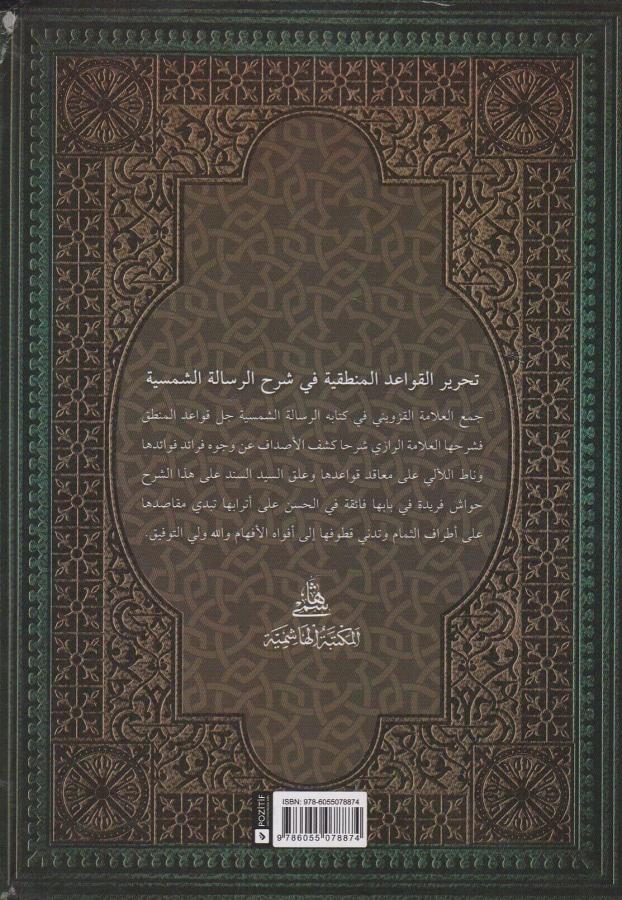 تحرير القواعد المنطقية في شرح الرسالة الشمسية
جمع العلامة القزويني في كتابه الرسالة الشمسية جل قواعد المنطق
فشرحها العلامة الرازي شرحا كشف الأصداف عن وجوه فرائد فوائدها
وناط اللآلي على معاقد قواعدها وعلق السيد السند على هذا الشرح
حواش فريدة في بابها فائقة في الحسن على أترابها تبدي مقاصدها
على أطراف الثمام وتدني قطوفها إلى أفواه الأفهام والله ولي التوفيق.
هاشمي
المكتبة الهاشمية
ISBN: 978-6055078874
9 786055 078874
POZİTİF